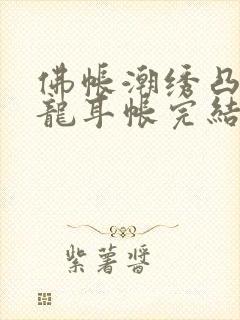 佛帐潮绣凸
龍耳帐完結
紫薯醬